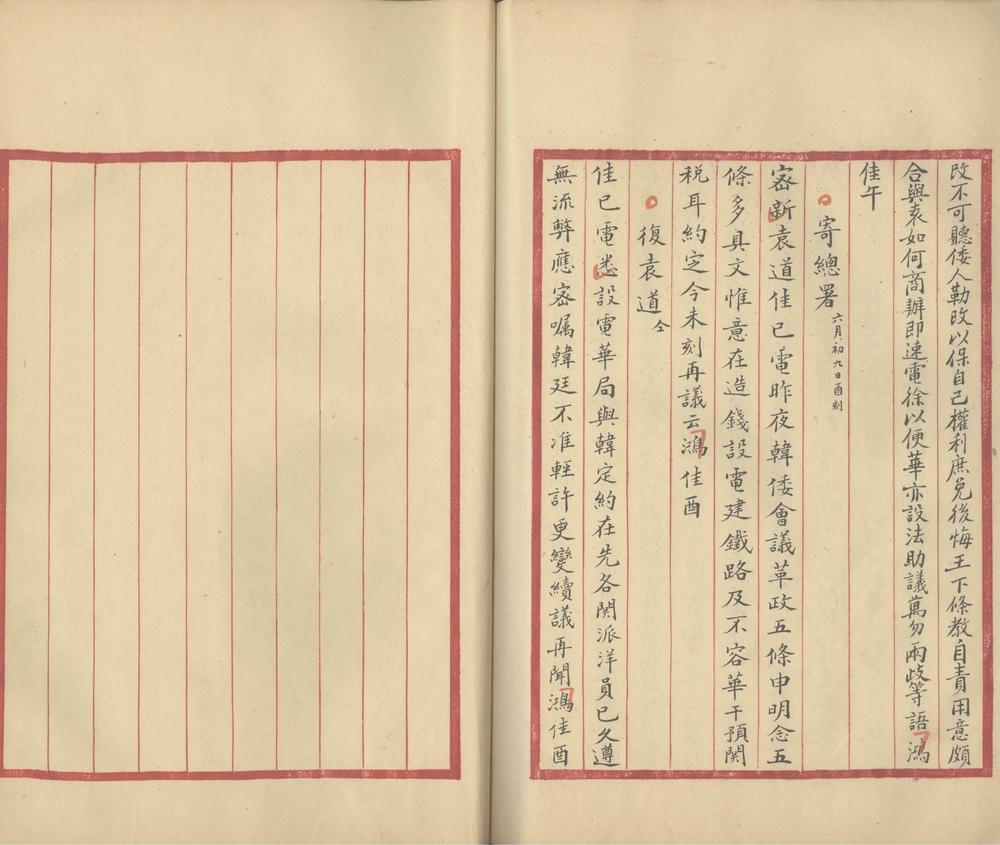 改不可聽倭人勒改以保自己權利庶免後悔王下條教自責用意頗
合與袁如何商辦即速電徐以便華亦設法助議萬勿兩歧等語鴻
佳午
寄總署 六月初九日酉刻
密新袁道佳巳電昨夜韓倭會議革政五條申明念五
條多具文惟意在造錢設電建鐵路及不容華干預関
稅耳約定今未刻再議云鴻佳酉
復袁道 仝
佳巳電悉設電華局與韓定約在先各関派洋員已久遵
無流弊應密嘱韓廷不准輕許更變續議再聞鴻佳酉